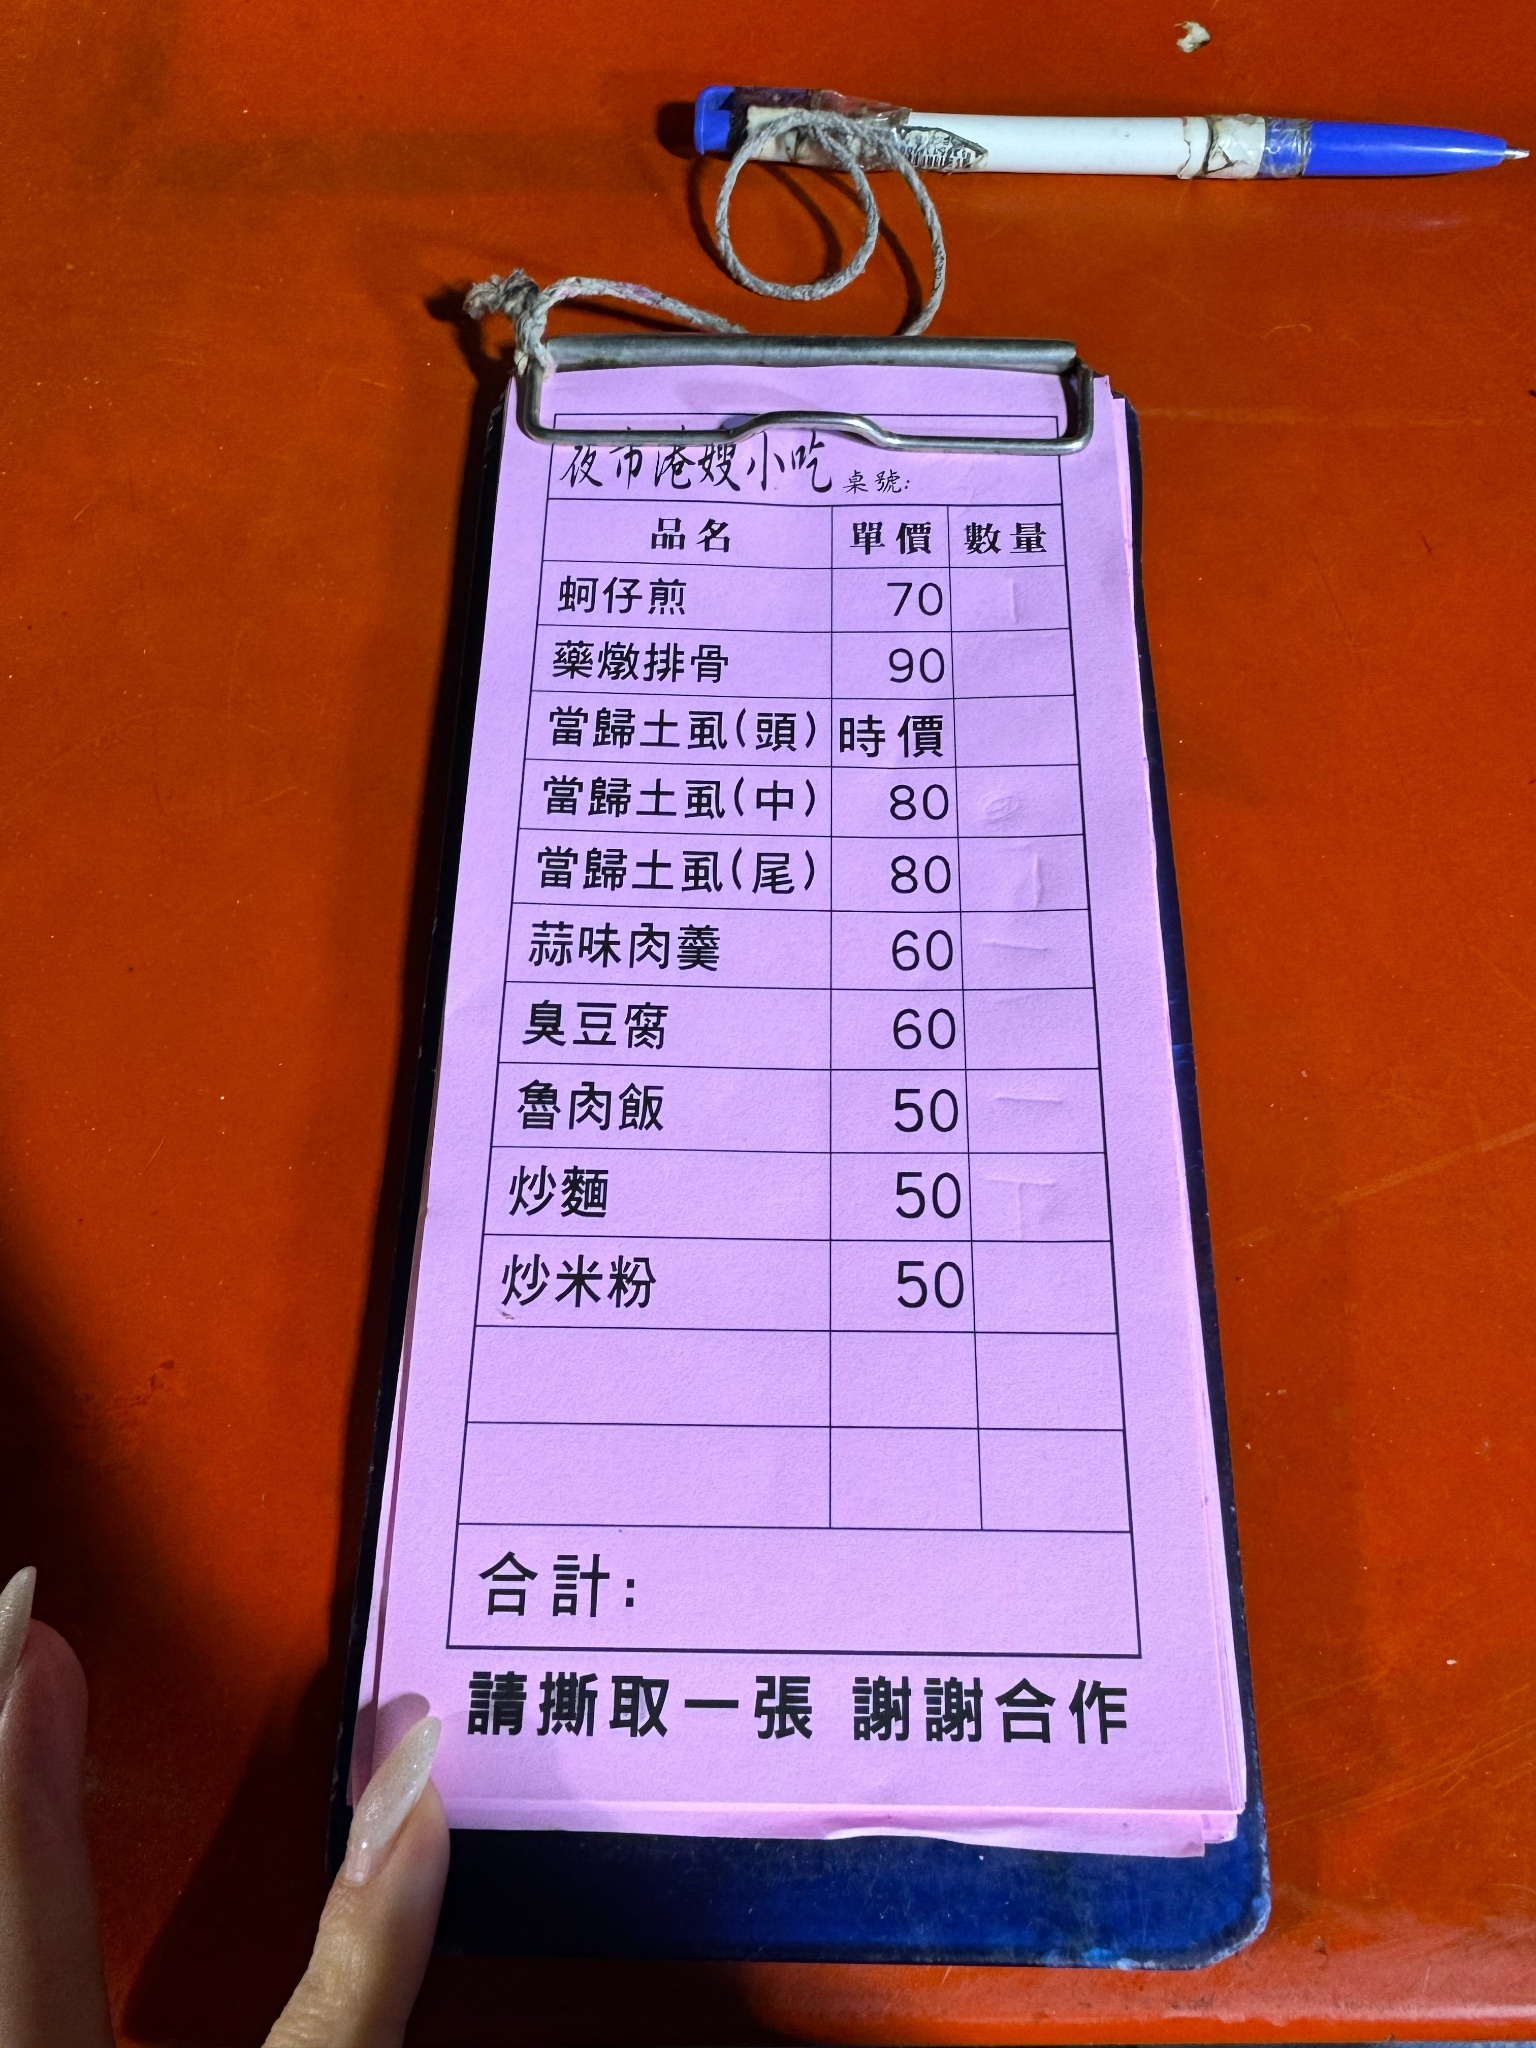 夜市港嫂小吃 桌號:
品名 單價 數量
蚵仔煎 70
藥燉排骨 90
當歸土虱(頭) 時價
當歸土虱(中) 80
當歸土虱(尾) 80
蒜味肉羹 60
臭豆腐 60
魯肉飯 50
炒麵 50
炒米粉 50
合計:
請撕取一張 謝謝合作